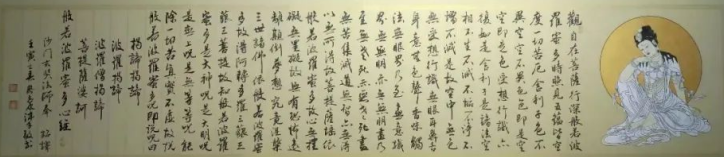 觀自在菩薩行深般若波
羅蜜多時照見五蘊皆空
度一切苦厄舍利子色不
異空空不異色色即是空
空即是色受想行識亦
復如是舍利子是諸法空
相不生不滅不垢不淨不
增不減是故空中無色
無受想行識無眼耳鼻舌
身意無色聲香味觸
法無眼界乃至無意識
界無無明亦無無明盡乃
至無老死亦無老死盡
無苦集滅道無智亦無得
以無所得故菩提薩埵依
般若波羅蜜多故心無罣
礙無罣礙故無有恐怖遠離
顛倒夢想究竟涅槃
三世諸佛依般若波羅蜜
多故得阿耨多羅三藐三
菩提故知般若波羅
蜜多是大神咒是大明咒
是無上咒是無等等咒能
除一切苦真實不虛故說
般若波羅蜜多咒即說咒曰
揭諦揭諦
波羅揭諦
波羅僧揭諦
菩提薩婆訶
般若波羅蜜多心經
沙門玄奘法師奉 詔譯
壬寅之春